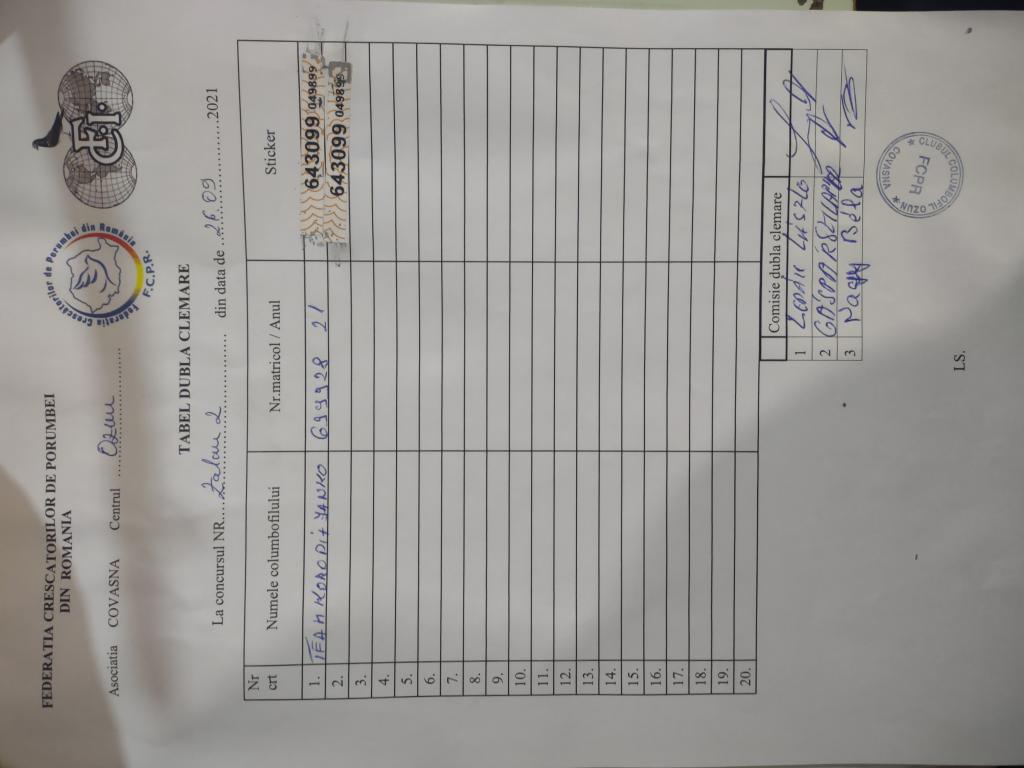 FEDERATIA CRESCATORILOR DE PORUMBEI
DIN ROMANIA
Federația Crescătorilor de Porumbei din România
F.C.P.R.
Asociatia COVASNA Centrul Ozun
TABEL DUBLA CLEMARE
La concursul NR. Zalau 2 din data de 26.09 2021
Nr crt Numele columbofilului Nr.matricol / Anul Sticker
1. 643099 049899
2. 643099 049899
3.
4.
5.
6.
7.
8.
9.
10.
11.
12.
13.
14.
15.
16.
17.
18.
19.
20.
Comisie dubla clemare
1
2
3 Nagy Béla
LS.
CLUBUL COLUMBOFIL OZUN
FCPR
COVASNA